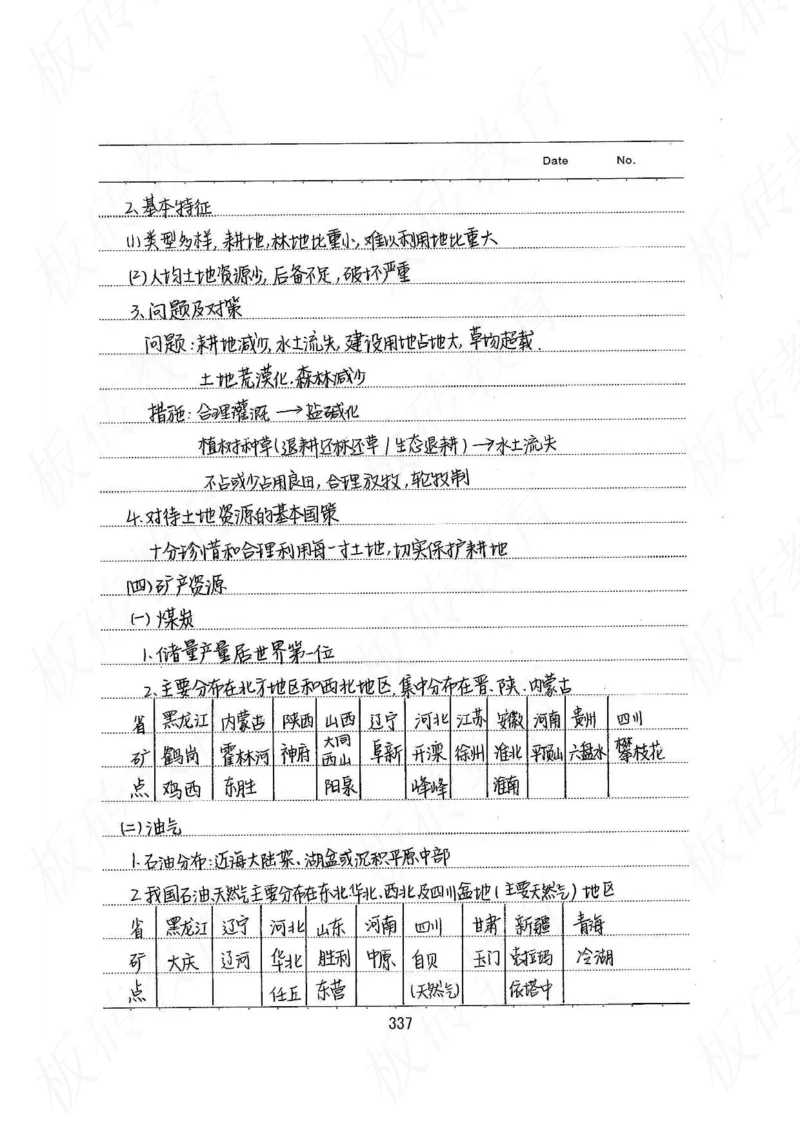 板砖教育
Date No.
2、基本特征
(1)类型多样,耕地,林地比重小,难以利用地比重大
(2)人均土地资源少,后备不足,破坏严重
3、问题及对策
问题:耕地减少,水土流失,建设用地占地大,草场超载.
土地荒漠化.森林减少
措施:合理灌溉→盐碱化
植树种草(退耕还林还草/生态退耕)→水土流失
不占或少占用良田,合理放牧,轮牧制
4.对待土地资源的基本国策
十分珍惜和合理利用每一寸土地,切实保护耕地
(四)矿产资源
(一)煤炭
1.储量产量居世界第一位
2、主要分布在北方地区和西北地区,集中分布在晋.陕.内蒙古
省 黑龙江 内蒙古 陕西 山西 辽宁 河北 江苏 安徽 河南 贵州 四川
矿 鹤岗 霍林河 神府 大同西山 阜新 开滦 徐州 淮北 平顶山 六盘水 攀枝花
点 鸡西 东胜 阳泉 峰峰 淮南
(二)油气
1.石油分布:近海大陆架、湖盆或沉积平原中部
2.我国石油.天然气主要分布在东北.华北、西北及四川盆地(主要天然气)地区
省 黑龙江 辽宁 河北 山东 河南 四川 甘肃 新疆 青海
矿 大庆 辽河 华北 胜利 中原 自贝 玉门 克拉玛 冷湖
点 任丘 东营 (天然气) 依塔中
337